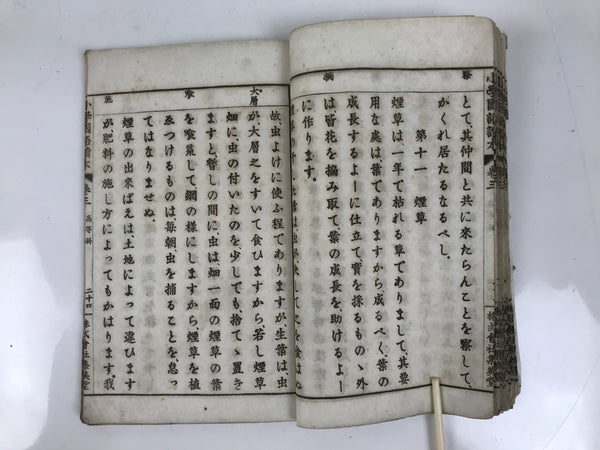 察
とて、其仲間と共に來たらんことを察して、
かくれ居たるなるべし。
第十一 煙草
煙草は一年で枯れる草でありまして、其要
用な處は、葉でありますから、成るべく、葉の
成長するよーに仕立て、實を採るものゝ外
は、皆花を摘み取て、葉の成長を助けるよー
に作ります。
摘
大層
喰
施
故虫よけに使ふ程でありますが、生葉は、虫
が、大層之をすいて食ひますから、若し煙草
畑に虫の付いたのを、少しでも捨てゝ置き
ますと、暫しの間に、虫は畑一面の煙草の葉
を喰荒して、網の樣にしますから、煙草を植
ゑつけるものは、每朝虫を捕ることを、怠っ
てはなりませぬ。
煙草の出來ばえは、土地によって違ひます
が、肥料の施し方によってもかはります。我
小學國語讀本 卷三 高等科 二十四